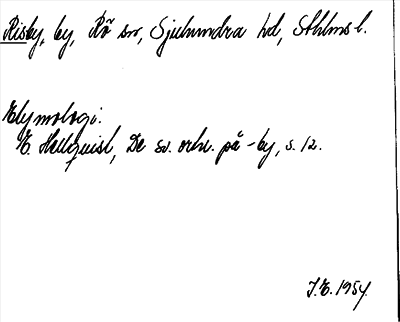 Risby, by, Rö sn, Sjuhundra hd, Sthlms l.
Etymologi:
E. Hellquist, De sv. ortn. på -by, s. 12.
J.E. 1954.